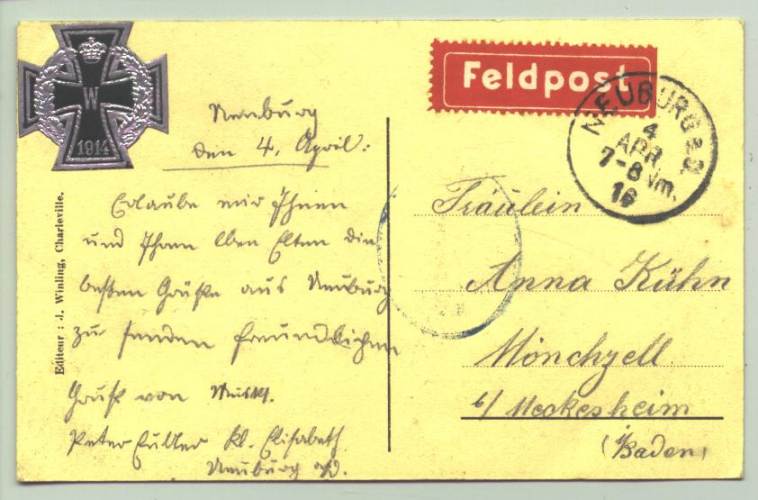 W
1914
Neuburg
den 4. April.
Erlaube mir Ihnen
und Ihren lben Eltern die
besten Grüße aus Neuburg
zu senden freundlichen
Gruß von
Peter kl. Elisabeth
Neuburg a/D.
Editeur : J. Winling, Charleville.
Feldpost
NEUBURG a.D.
4
APR.
7-8 Nm.
16
Fräulein
Anna Kühn
Mönchzell
b/ Meckesheim
(Baden)